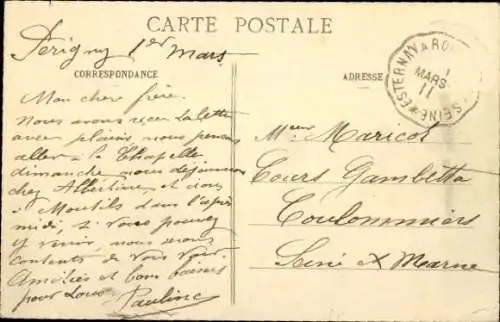 CARTE POSTALE
Perigny 1er Mars
CORRESPONDANCE
ADRESSE
ESTERNAY A RO
1
MARS
11
SEINE
Mon cher frère.
Nous avons reçu ta lettre
avec plaisir, nous pensons
aller à la Chapelle
dimanche, nous déjeunons
chez Albertine et nous
à Moutils dans l'après
midi, si vous pouvez
y venir, nous serons
contents de vous voir.
Amitiés et bons baisers
pour tous
Pauline
Mr Maricot
Cours Gambetta
Coulommiers
Seine et Marne